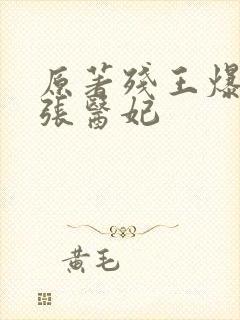 原著殘王爆
張醫妃
黃毛